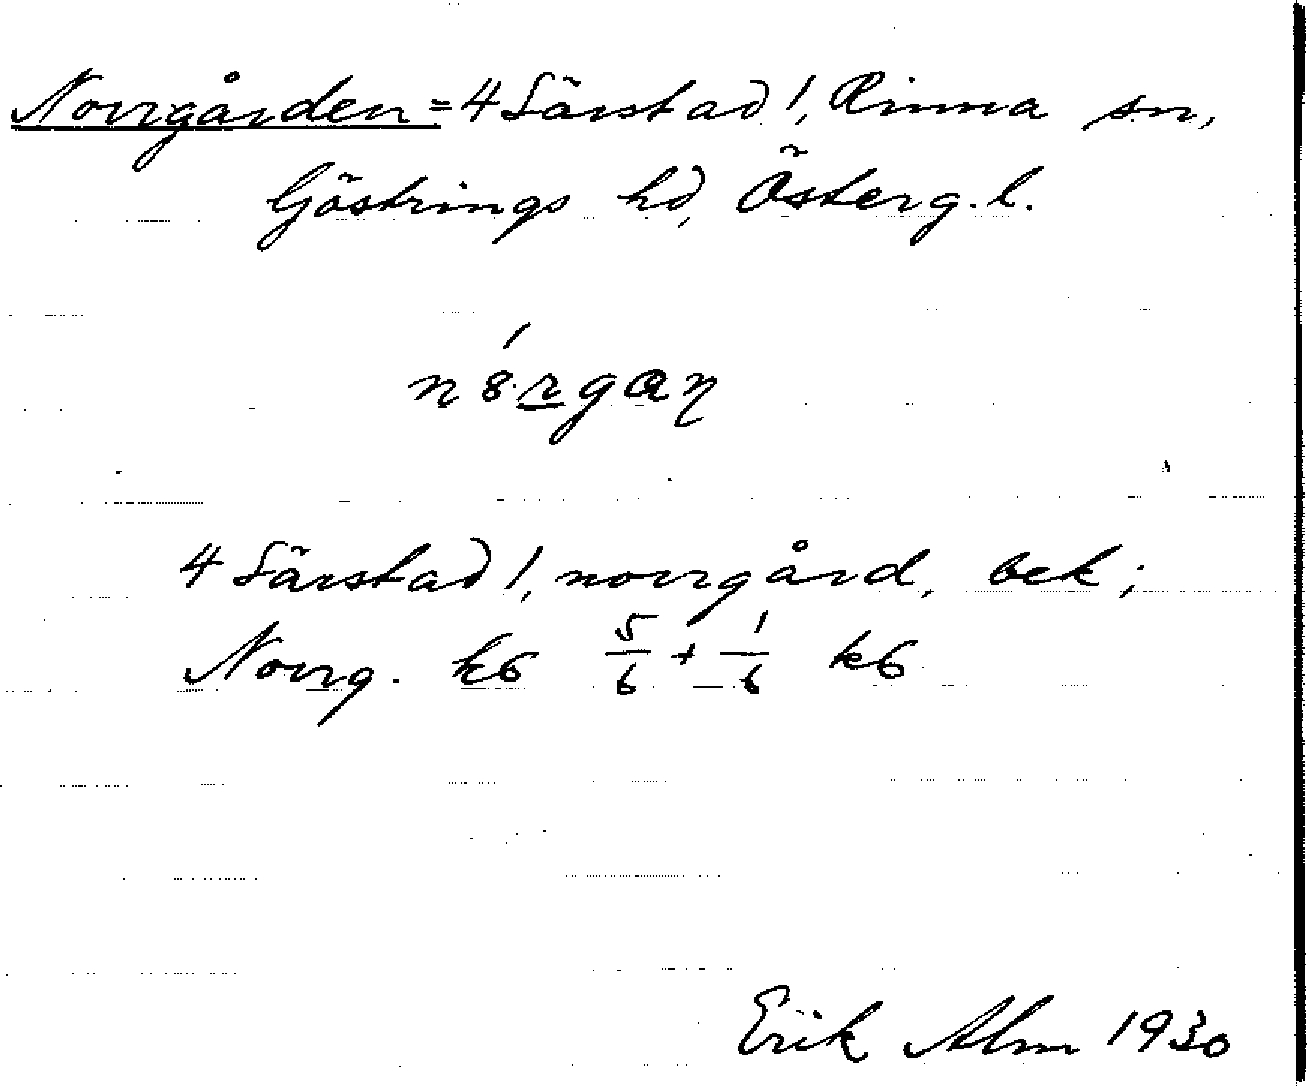 Norrgården = 4 Särstad /, Rinna sn,
Göstrings hd, Österg. l.
4 Särstad /, norrgård, bek;
Norrg. k6 5/6 + 1/6 k6
Erik Alm 1930